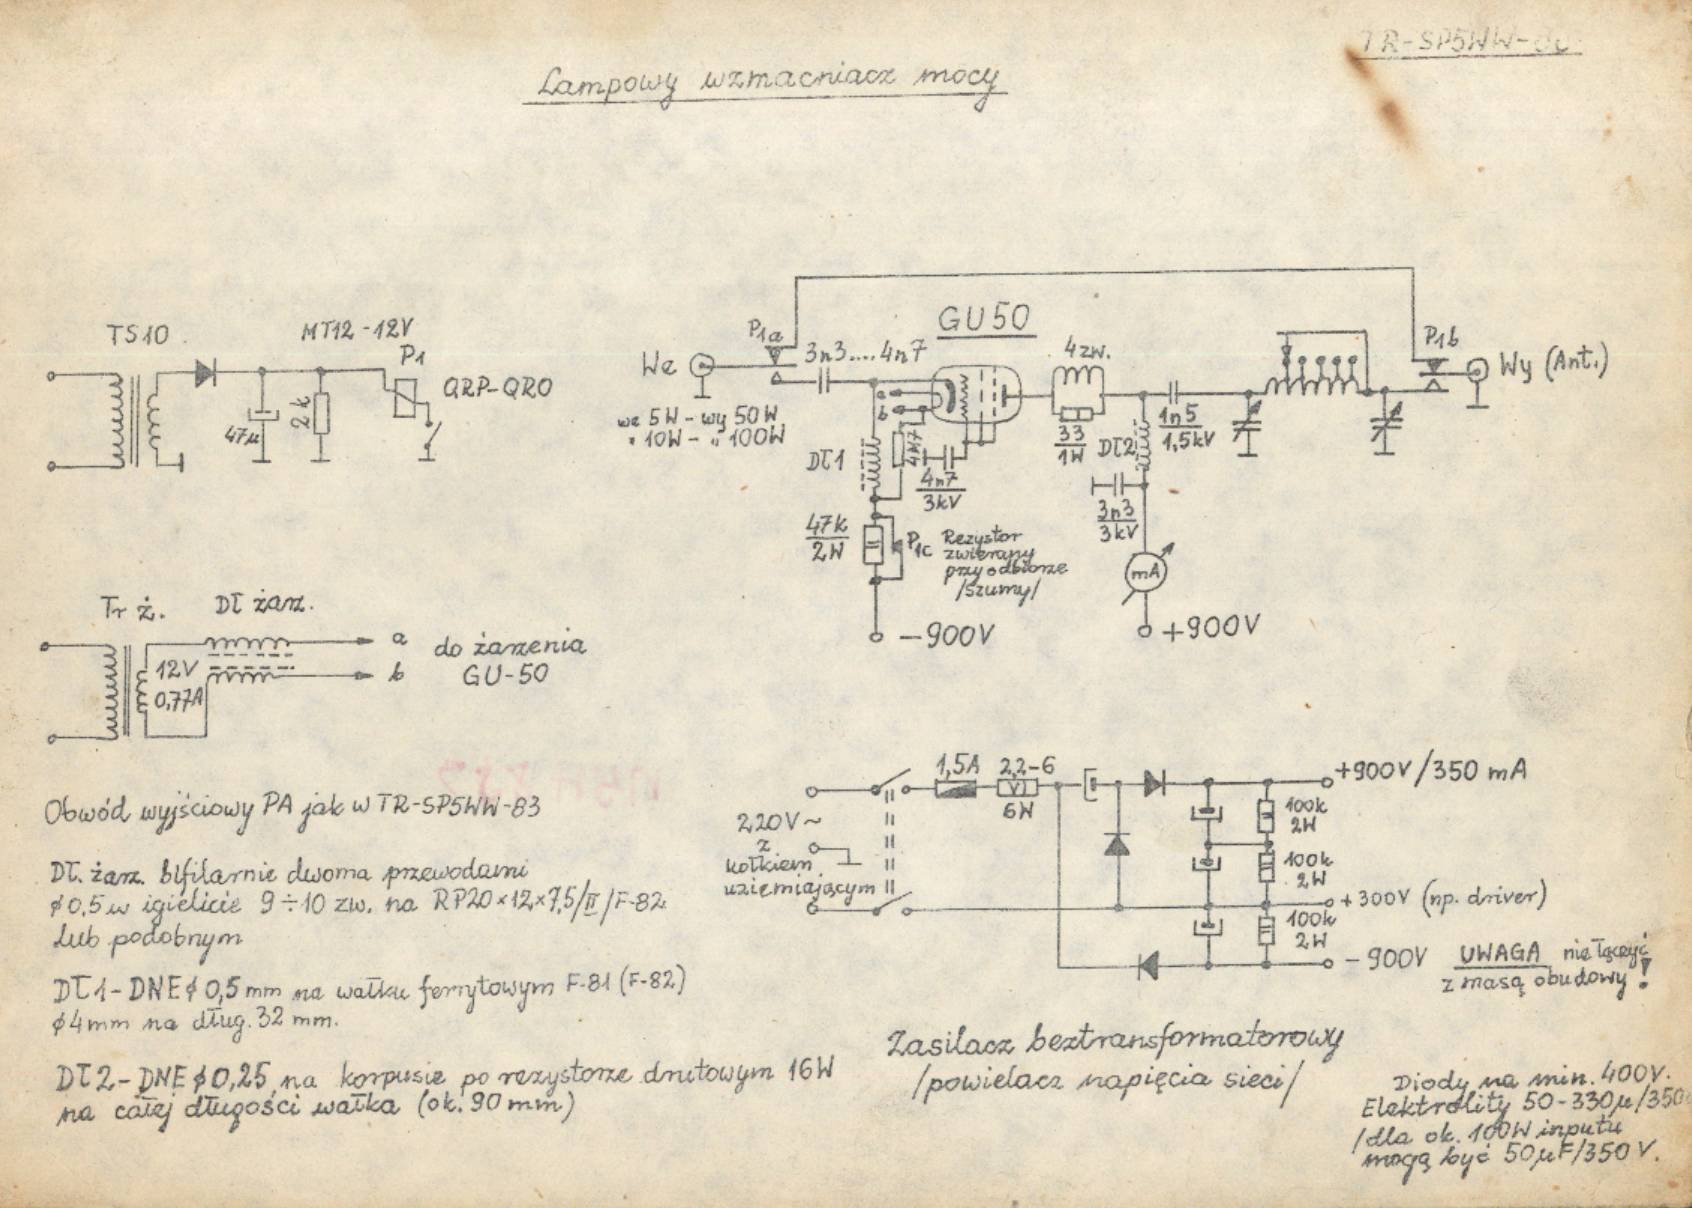 TR-SP5WW-80
Lampowy wzmacniacz mocy
TS10
MT12-12V
P1
QRP-QRO
47µ
2k
GU50
We
P1a
3n3....4n7
4zw.
P1b
Wy (Ant.)
a
b
we 5W - wy 50W
" 10W - " 100W
DŁ1
4n7
4n7
3kV
33
1W
DŁ2
1n5
1,5kV
3n3
3kV
47k
2W
P1c
Rezystor
zwierany
przy odbiorze
/szumy/
mA
-900V
+900V
Tr ż.
Dł żarz.
12V
0,77A
a
b
do żarzenia
GU-50
1,5A
2,2-6
V
6W
+900V/350 mA
220V~
z
kołkiem
uziemiającym
100k
2W
100k
2W
100k
2W
+300V (np. driver)
-900V UWAGA nie łączyć
z masą obudowy!
Obwód wyjściowy PA jak w TR-SP5WW-83
Dł. żarz. bifilarnie dwoma przewodami
ø0,5 w igielicie 9÷10 zw. na RP20×12×7,5/II/F-82
lub podobnym
DŁ1-DNEø0,5mm na wałku ferrytowym F-81 (F-82)
ø4mm na dług. 32 mm.
DŁ2-DNEø0,25 na korpusie po rezystorze drutowym 16W
na całej długości wałka (ok. 90mm)
Zasilacz beztransformatorowy
/powielacz napięcia sieci/
Diody na min. 400V.
Elektrolity 50-330µ/350
/dla ok. 100W inputu
mogą być 50µF/350V.